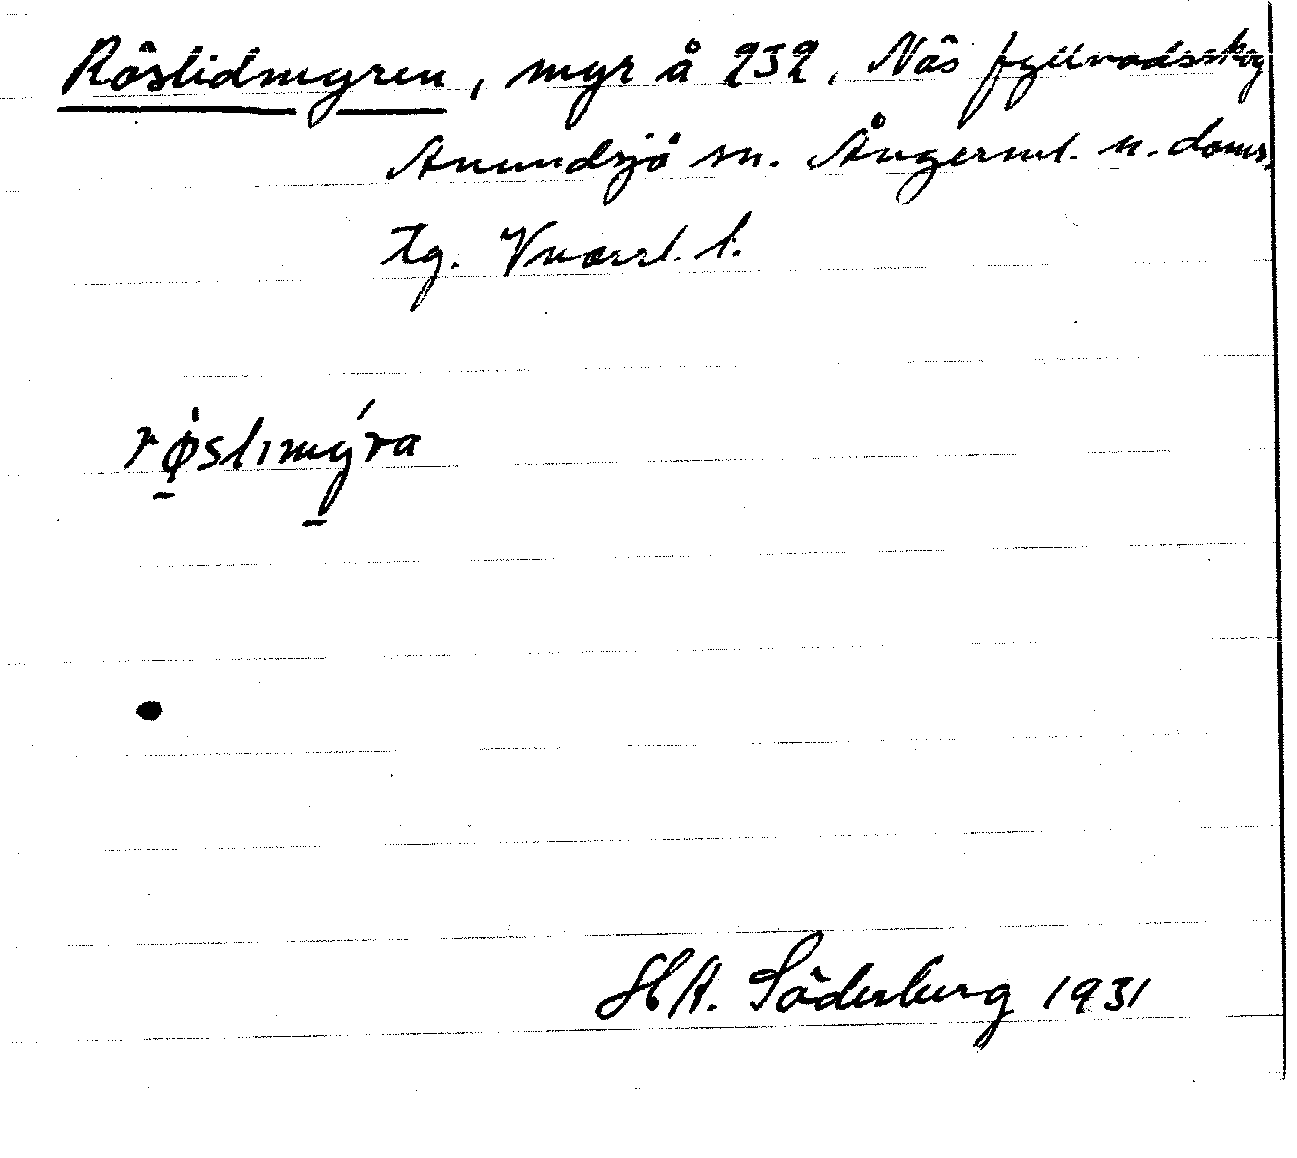 Röslidmyren, myr å 232, Näs fyllnadsskog
Anundsjö sn. Ångerml. n. doms.
tg. Vnorrl. l.
røslımýra
H A. Söderberg 1931